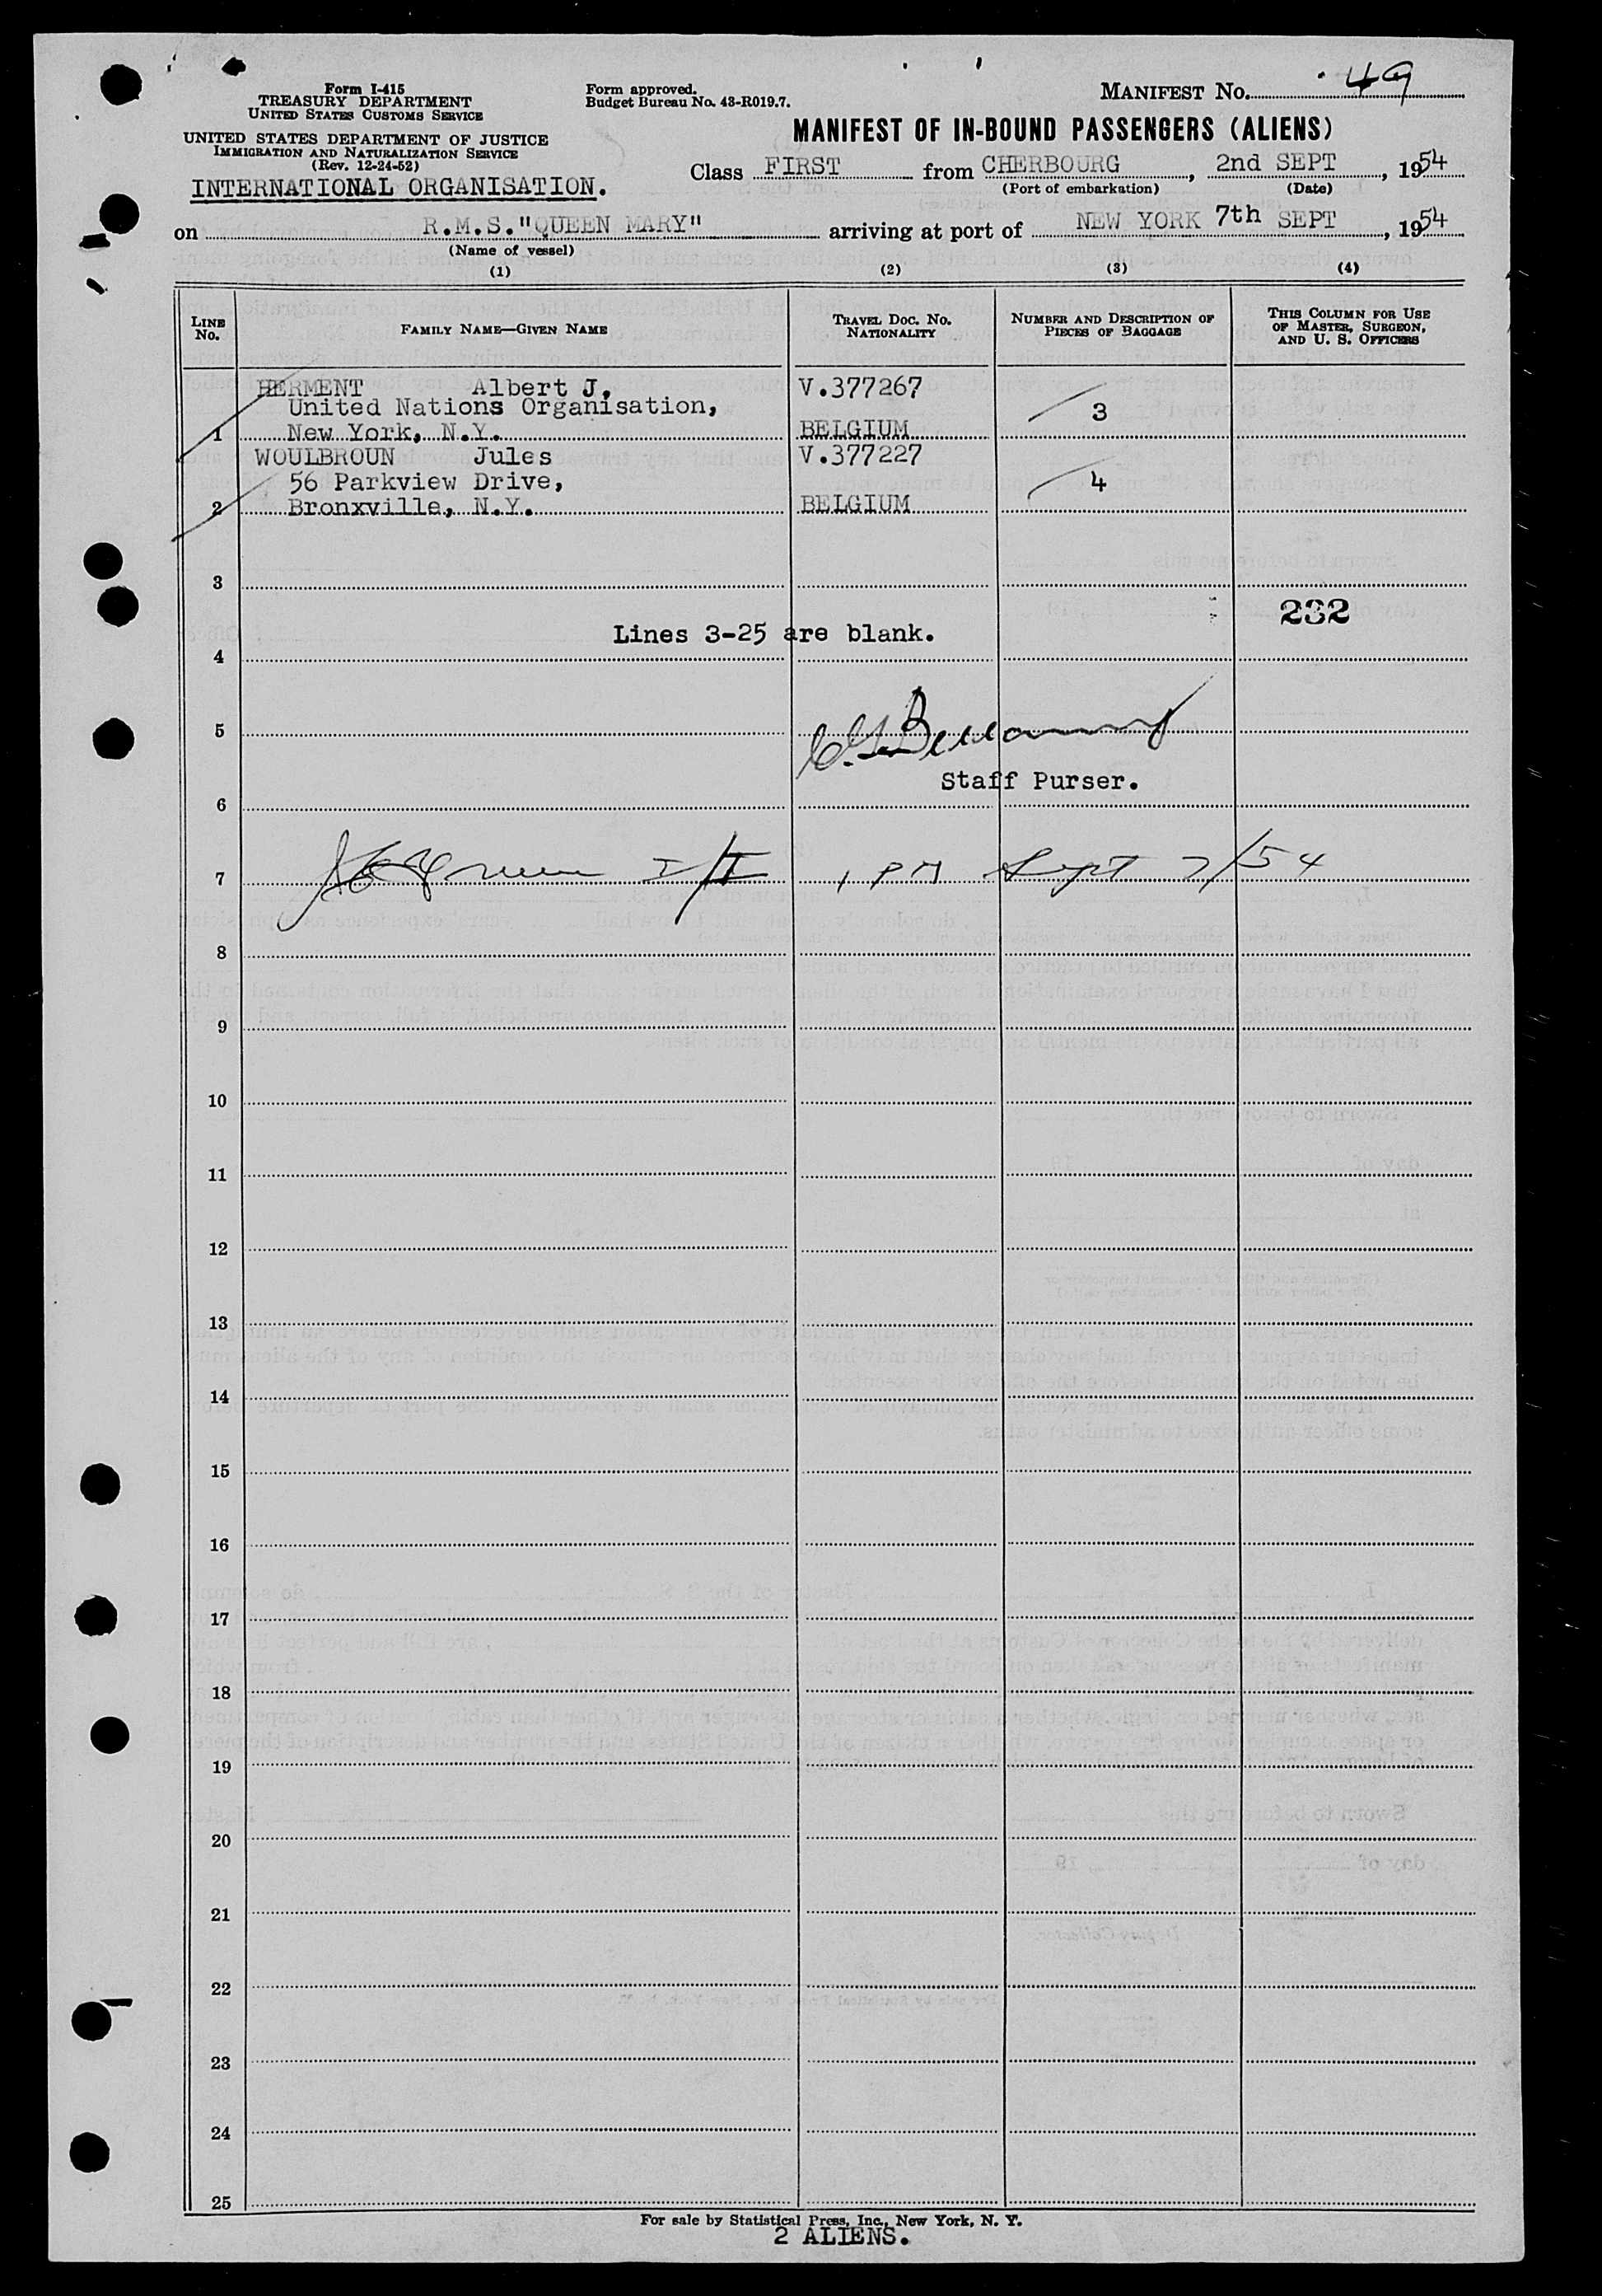 Form I-415
TREASURY DEPARTMENT
UNITED STATES CUSTOMS SERVICE
UNITED STATES DEPARTMENT OF JUSTICE
IMMIGRATION AND NATURALIZATION SERVICE
(Rev. 12-24-52)
INTERNATIONAL ORGANISATION.
Form approved.
Budget Bureau No. 43-R019.7.
MANIFEST NO. 49
MANIFEST OF IN-BOUND PASSENGERS (ALIENS)
Class FIRST from CHERBOURG, 2nd SEPT, 1954
(Port of embarkation) (Date)
on R.M.S."QUEEN MARY" arriving at port of NEW YORK 7th SEPT, 1954
(Name of vessel)
(1) (2) (3) (4)
LINE No. FAMILY NAME—GIVEN NAME TRAVEL DOC. NO. NATIONALITY NUMBER AND DESCRIPTION OF PIECES OF BAGGAGE THIS COLUMN FOR USE OF MASTER, SURGEON, AND U. S. OFFICERS
HERMENT Albert J. V.377267
United Nations Organisation, 3
1 New York, N.Y. BELGIUM
WOULBROUN Jules V.377227
56 Parkview Drive, 4
2 Bronxville, N.Y. BELGIUM
3
232
Lines 3-25 are blank.
4
5
Staff Purser.
6
7 1 PM Sept 7/54
8
9
10
11
12
13
14
15
16
17
18
19
20
21
22
23
24
25
For sale by Statistical Press, Inc., New York, N. Y.
2 ALIENS.